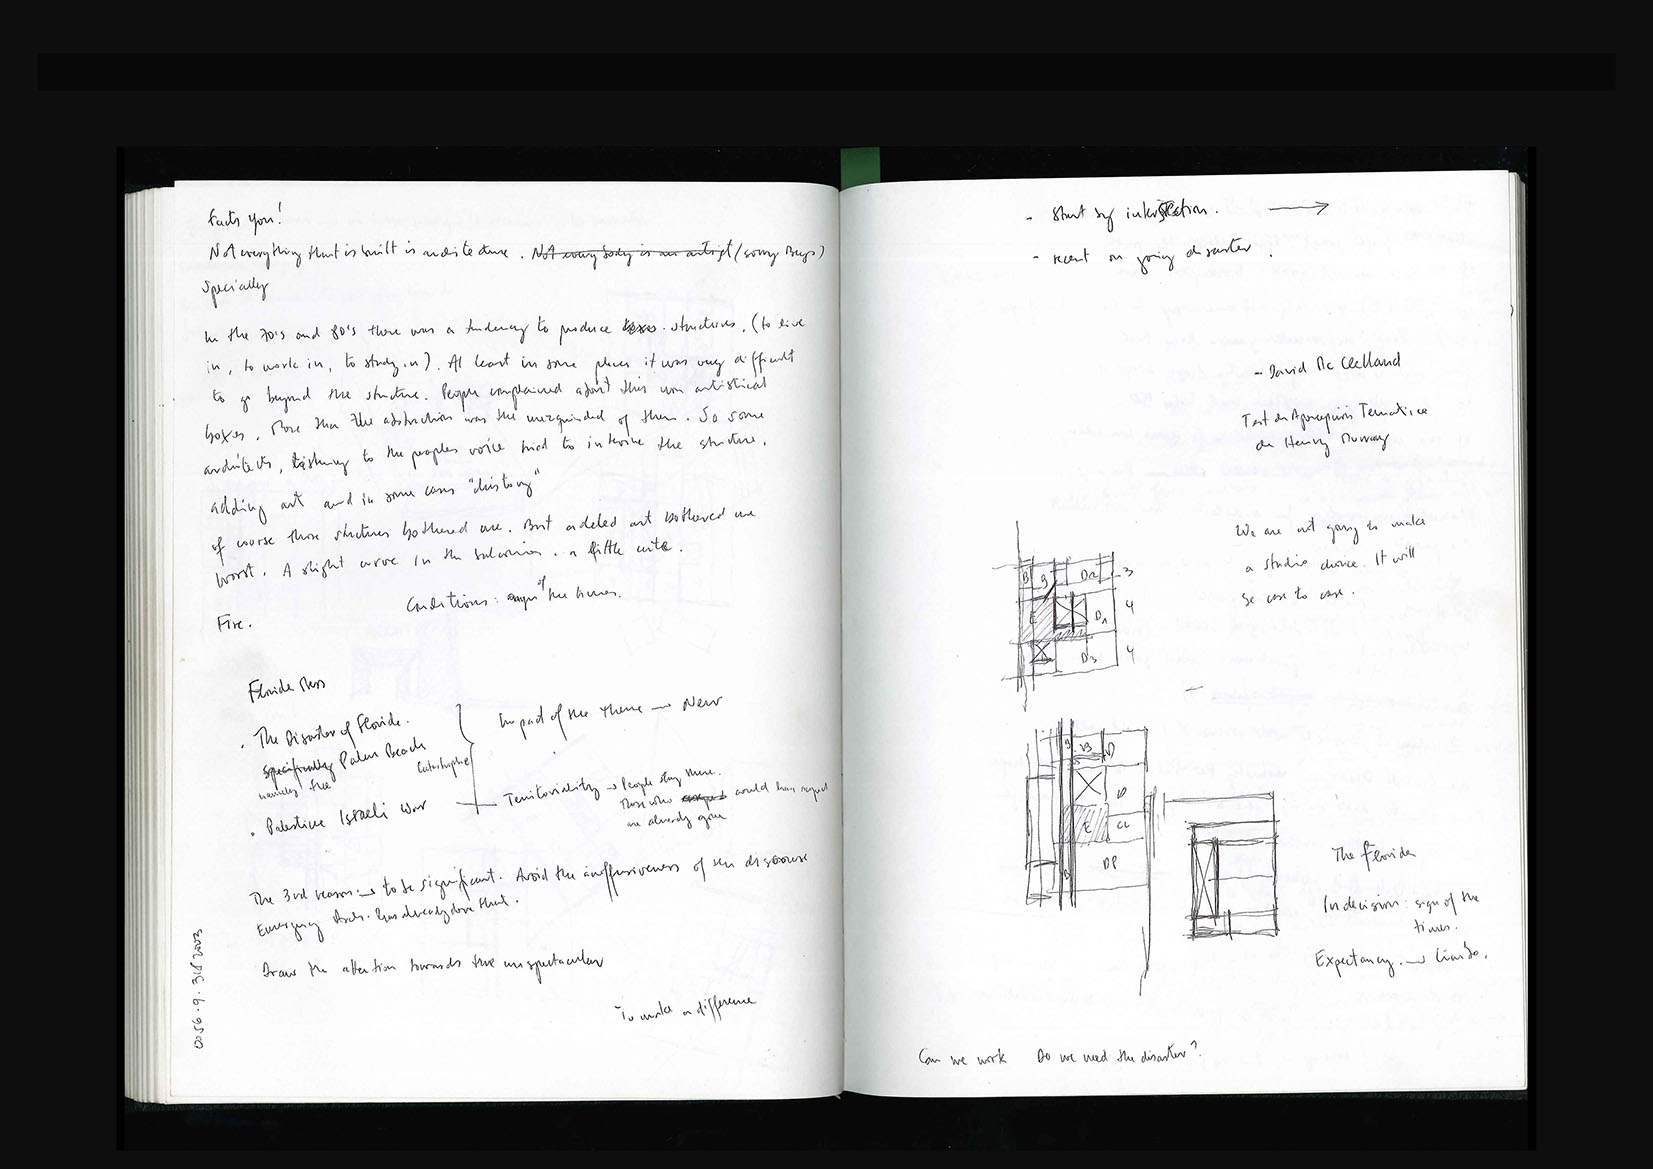 Facts you!
Not everything that is built is architecture. Not everybody is an artist (sorry Beuys)
Specially
In the 70's and 80's there was a tendency to produce boxes. structures. (to live
in, to work in, to study in). At least in some places it was very difficult
to go beyond the structure. People complained about this non artistical
boxes. More than the abstraction was the of them. So some
architects, listening to the peoples voice tried to the structure.
adding art and in some cases "history"
of course those structures bothered me. But added art bothered me
worst. A slight curve in the balconies. a little
Conditions: sign of the times.
Fire.
Florida
. The Disaster of Florida.
specifically Palm Beach
namely the
Catastrophe
. Palestine Israeli War
Impact of the theme → New
Territoriality → People stay there.
Those who would have
are already gone
The 3rd reason → to be significant. Avoid the inoffensiveness of the discourse
Emergency Arch. has already done that.
Draw the attention towards the unspectacular
To make a difference
0056.9.318 2003
- Start by intersection. →
- recent on going disaster.
- David Mc Clelland
Test de Apercepción Temática
de Henry Murray
We are not going to make
a studio choice. It will
be case to case.
B 9 D2 3
E D1 4
D3 4
B B D
D
E CL
B DP
The Florida
Indecision: sign of the
times.
Expectancy →
Can we work Do we need the disaster?